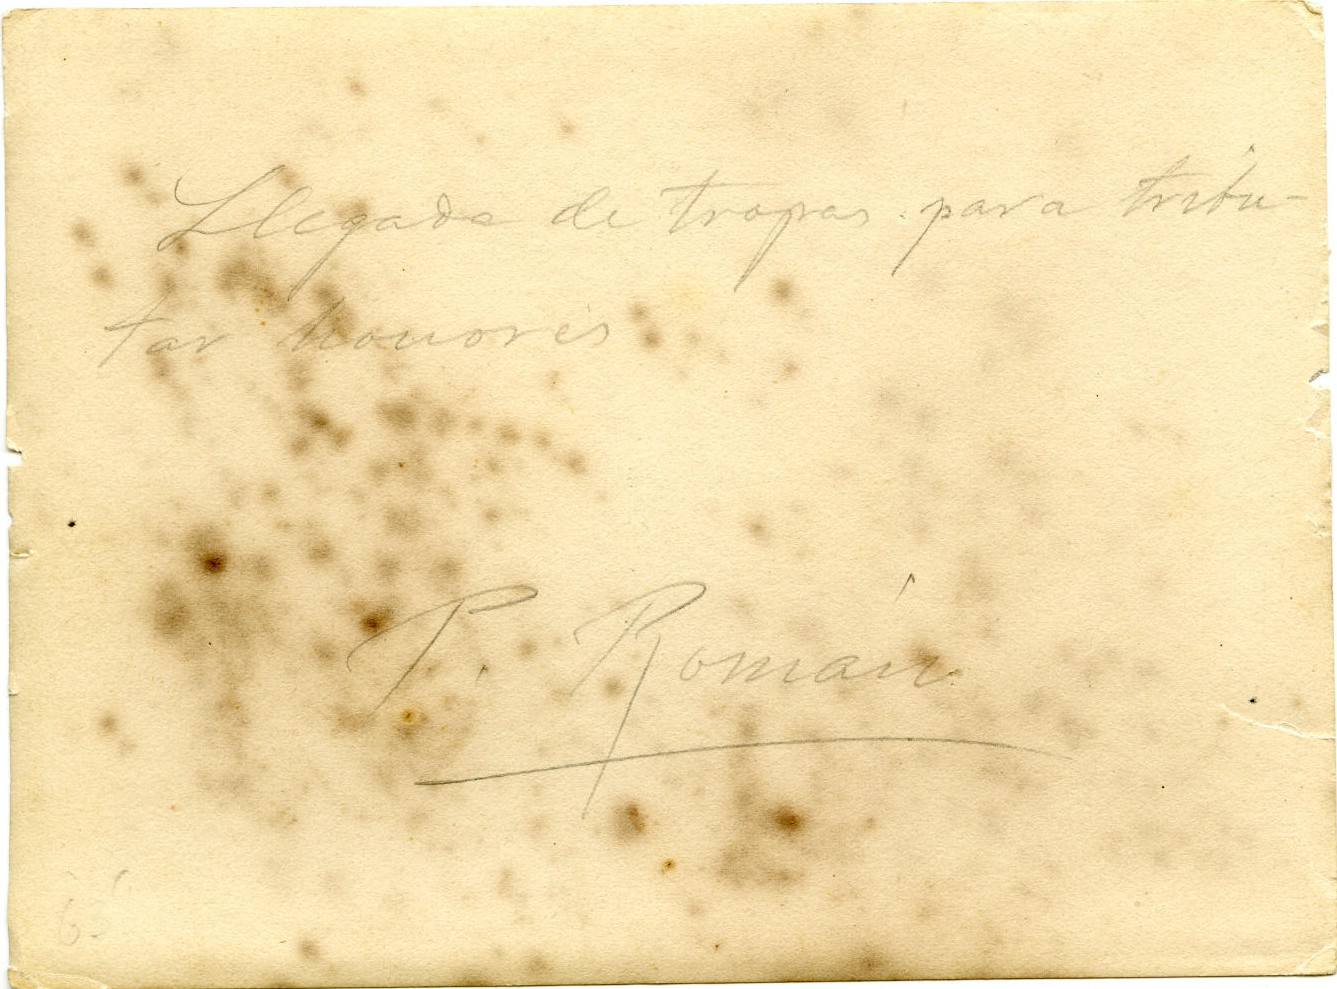 Llegada de tropas para tribu-
tar honores
P. Román